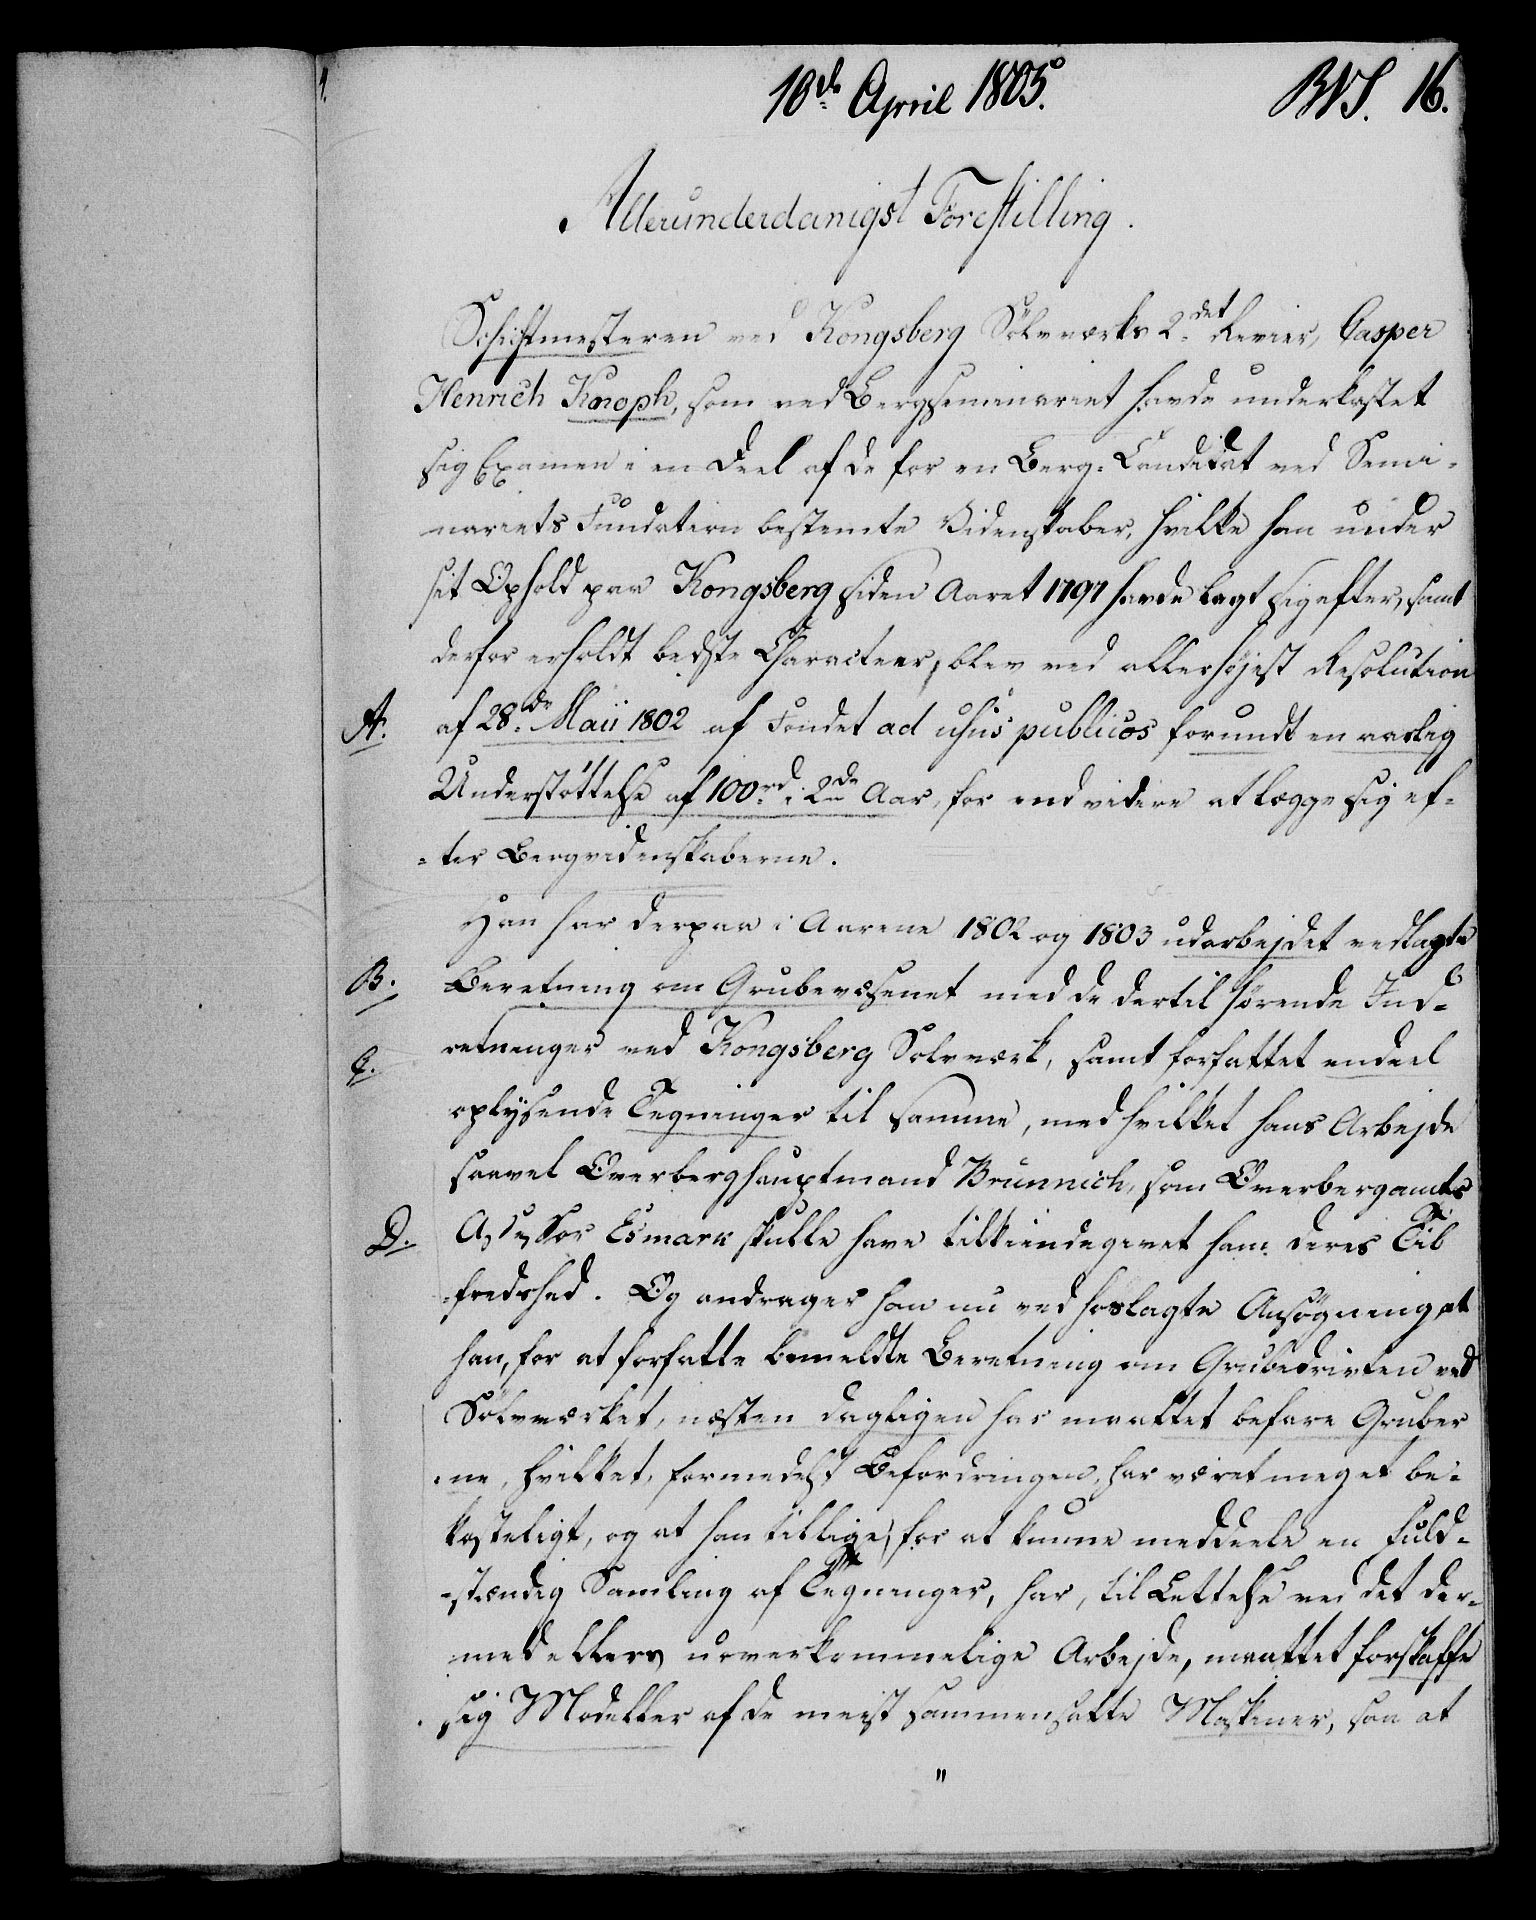 10de April 1805.
BVS. 16.
Allerunderdanigst Forestilling.
Schichtmesteren ved Kongsberg Sölvværks 2det Revier, Casper
Henrich Knoph, som ved Bergseminariet havde underkastet
sig Examen i en Deel af de for en Berg-Candidat ved Semi-
nariets Fundation bestemte Videnskaber, hvilke han under
sit Ophold paa Kongsberg siden Aaret 1797 havde lagt sig efter, samt
derfor erholdt bedste Characteer, blev ved allerhöjest Resolution
A. af 28de Maii 1802 af Fondet ad usus publicos forundt en aarlig
Understöttelse af 100rd i 2de Aar, for end videre at lægge sig ef-
-ter Bergvidenskaberne.
Han har derpaa i Aarene 1802 og 1803 udarbejdet vedlagte
B. Beretning om Grubevæsenet med de dertil hörende Ind-
C. retninger ved Kongsberg Sölvværk, samt forfattet endeel
oplysende Tegninger til samme, med hvilket hans Arbejde
saavel Overberghauptmand Brünnich, som Overbergamts
D. Assessor Esmark skulle have tilkiendegivet ham deres Til-
-fredshed. Og andrager han nu ved hoslagte Ansögning, at
han, for at forfatte bemeldte Beretning om Grubedriften ved
Sölvværket, næsten dagligen har maattet befare Gruber
-ne, hvilket, formedelst Befordringen, har været meget be-
kosteligt, og at han tillige, for at kunne meddeele en fuld-
-stændig Samling af Tegninger, har, til Lettelse ved det der-
med ellers uoverkommelige Arbejde, maattet forskaffe
sig Modeller af de meist sammensatte Maskiner, saa at
"